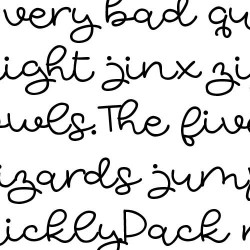 very bad qu
ight jinx zi
owls. The five
izards jump
icklyPack